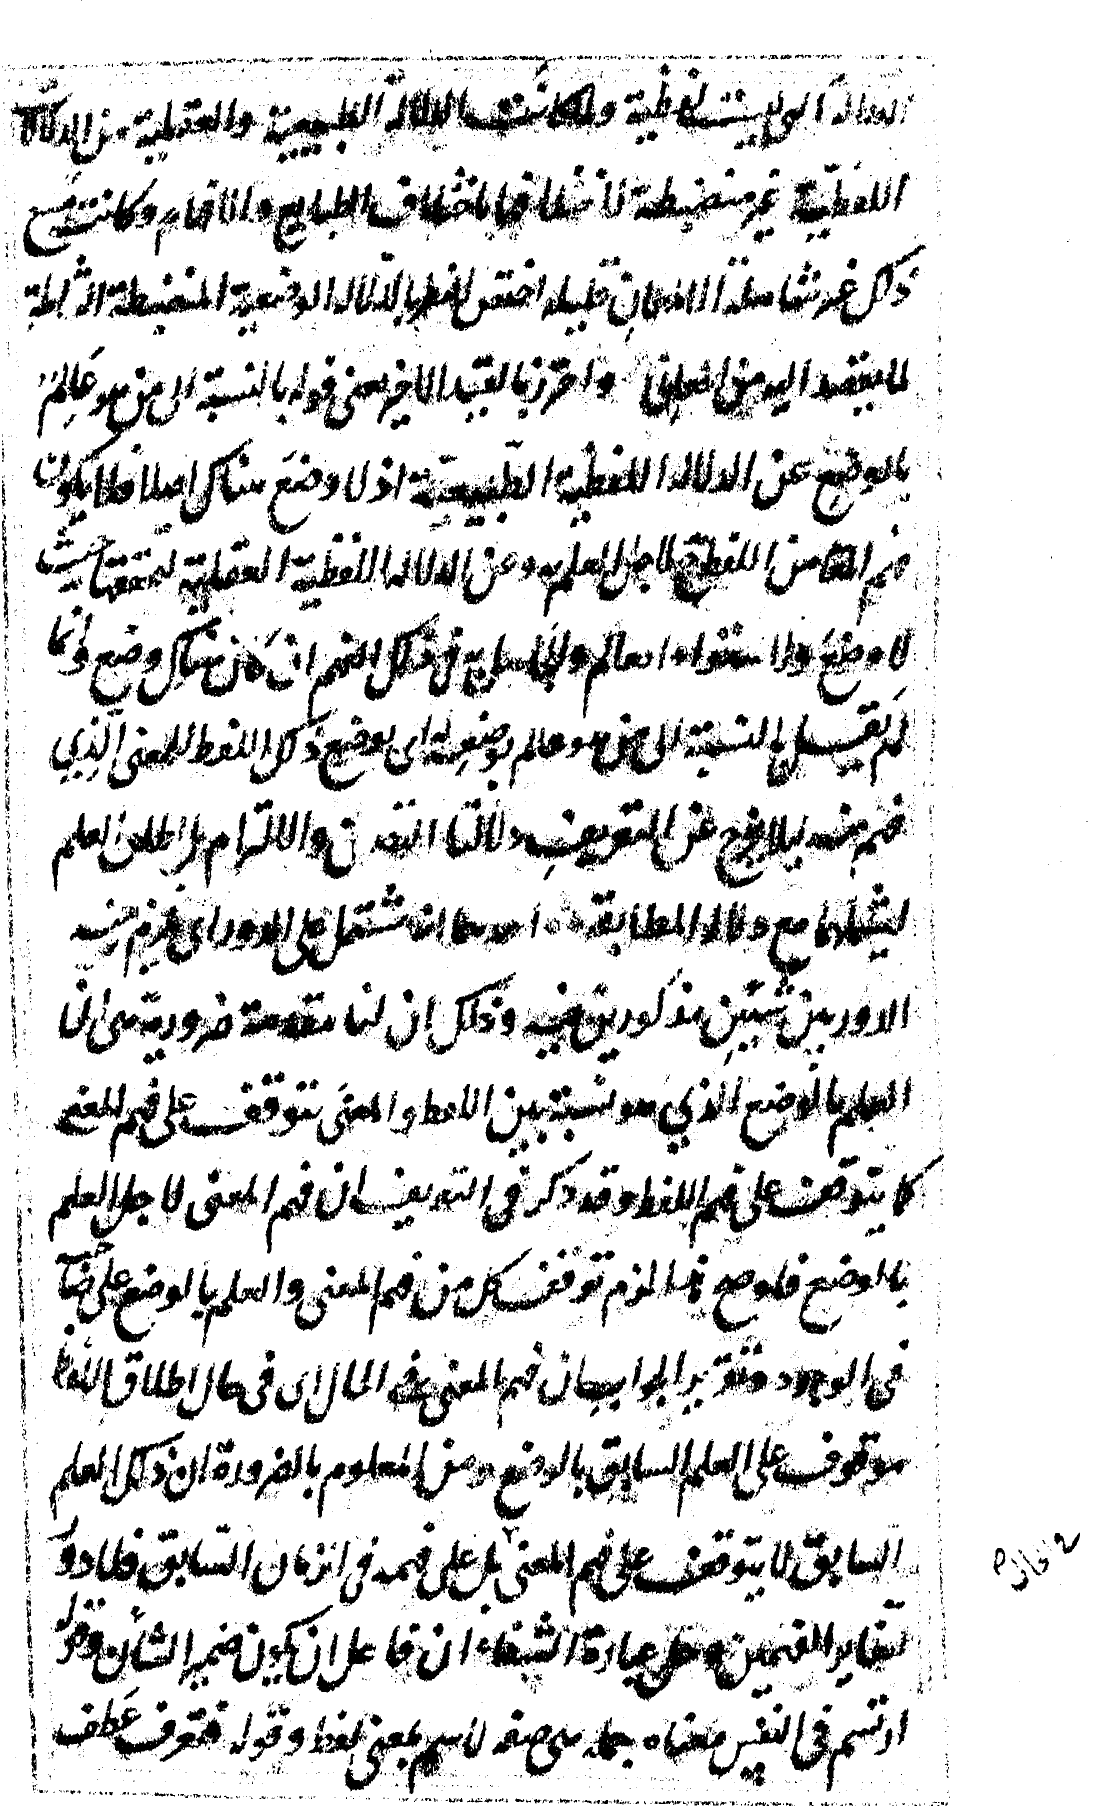 الدلالة التي ليست لفظية ولما كانت الدلالة الطبيعية والعقلية من الدلالة
اللفظية غير منضبطة لاختلافها باختلاف الطبايع والافهام وكانت مع
ذلك غير شاملة الا لمعان قليلة اختص النظر بالدلالة الوضعية المنضبطة الشاملة
لما يقصد اليه من المعاني واحترز بالقيد الاخير يعني قوله بالنسبة الى من هو عالم
بالوضع عن الدلالة اللفظية الطبيعية اذ لا وضع هناك اصلا فلا يكون
فهم المعنى من اللفظ لاجل العلم به وعن الدلالة اللفظية العقلية لتحققها حيث
لا وضع ولاستواء العالم والجاهل به في ذلك الفهم ان كان هناك وضع وانما
لم يقل بالنسبة الى من هو عالم بوضعه له اى بوضع ذلك اللفظ للمعنى الذي
فهم منه ليلا يخرج عن التعريف دلالتا التضمن والالتزام بل اطلق العلم
ليشملهما مع دلالة المطابقة احدهما انه مشتمل على الدور اى يلزم منه
الدور بين شيئين مذكورين فيه وذلك ان لنا مقدمة ضرورية هى ان
العلم بالوضع الذي هو نسبة بين اللفظ والمعنى يتوقف على فهم المعنى
كما يتوقف على فهم اللفظ وقد ذكر في التعريف ان فهم المعنى لاجل العلم
بالوضع فلو صح هذا لزم توقف كل من فهم المعنى والعلم بالوضع على صاحبه
في الوجود وتقرير الجواب ان فهم المعنى في الحال اى فى حال اطلاق اللفظ
موقوف على العلم السابق بالوضع ومن المعلوم بالضرورة ان ذلك العلم
السابق لا يتوقف على فهم المعنى بل على فهمه في الزمان السابق فلا دور
لتغاير الفهمين وحل عبارة الشفاء ان فاعل ان يكون ضمير الشان وقوله
ارتسم في النفس معناه جملة هى صفة لاسم بمعنى لفظ وقوله فتعرف عطف
في الحال